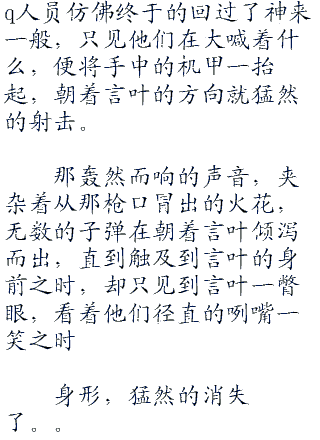 q人员仿佛终于的回过了神来
一般，只见他们在大喊着什
么，便将手中的机甲一抬
起，朝着言叶的方向就猛然
的射击。
那轰然而响的声音，夹
杂着从那枪口冒出的火花，
无数的子弹在朝着言叶倾泻
而出，直到触及到言叶的身
前之时，却只见到言叶一瞥
眼，看着他们径直的咧嘴一
笑之时
身形，猛然的消失
了。。